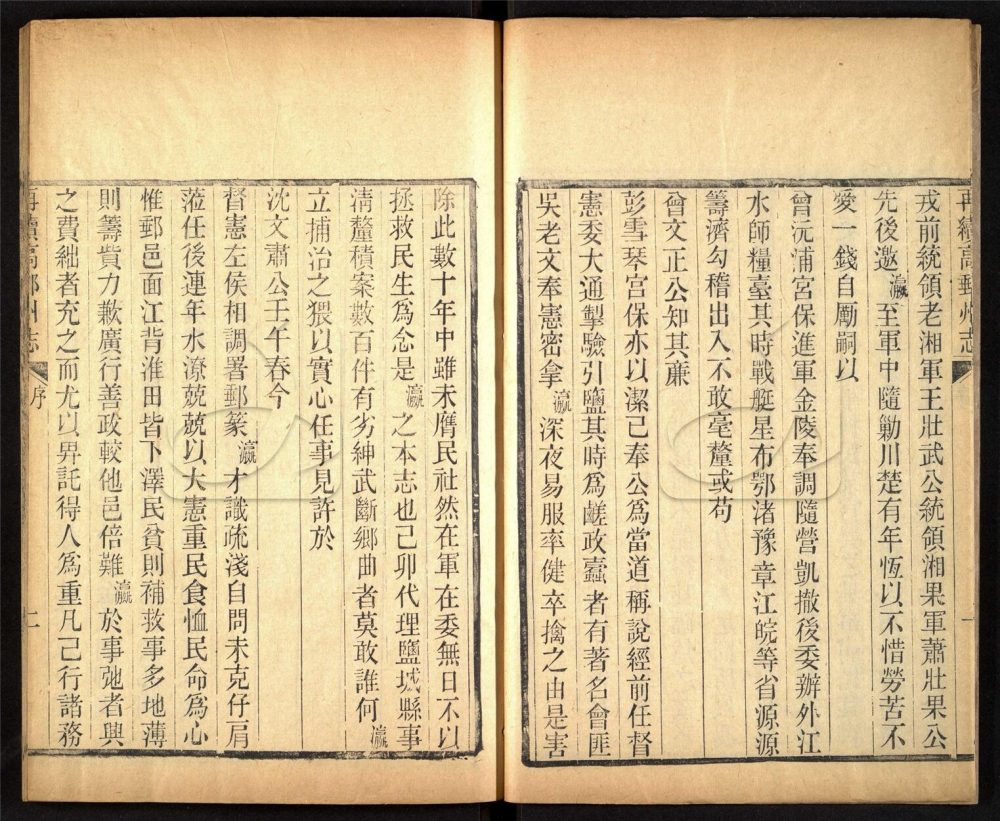 再續高郵州志
戎前統領老湘軍王壯武公統領湘果軍蕭壯果公
先後邀瀛至軍中隨勦川楚有年恆以不惜勞苦不
愛一錢自勵嗣以
曾沅浦宮保進軍金陵奉調隨營凱撤後委辦外江
水師糧臺其時戰艇星布鄂渚豫章江皖等省源源
籌濟勾稽出入不敢毫釐或苟
曾文正公知其亷
彭雪琴宮保亦以潔己奉公爲當道稱說經前任督
憲委大通掣驗引鹽其時爲鹺政蠹者有著名會匪
吳老文奉憲密拿瀛深夜易服率健卒擒之由是害
除此數十年中雖未膺民社然在軍在委無日不以
拯救民生爲念是瀛之本志也己卯代理鹽城縣事
淸釐積案數百件有劣紳武斷鄉曲者莫敢誰何瀛
立捕治之猥以實心任事見許於
沈文肅公壬午春今
督憲左侯相調署郵篆瀛才識疏淺自問未克仔肩
蒞任後連年水潦兢兢以大憲重民食恤民命爲心
惟郵邑面江背淮田皆下澤民貧則補救事多地薄
則籌貲力歉廣行善政較他邑倍難瀛於事弛者興
之費絀者充之而尤以畀託得人爲重凡己行諸務
再續高郵州志
序